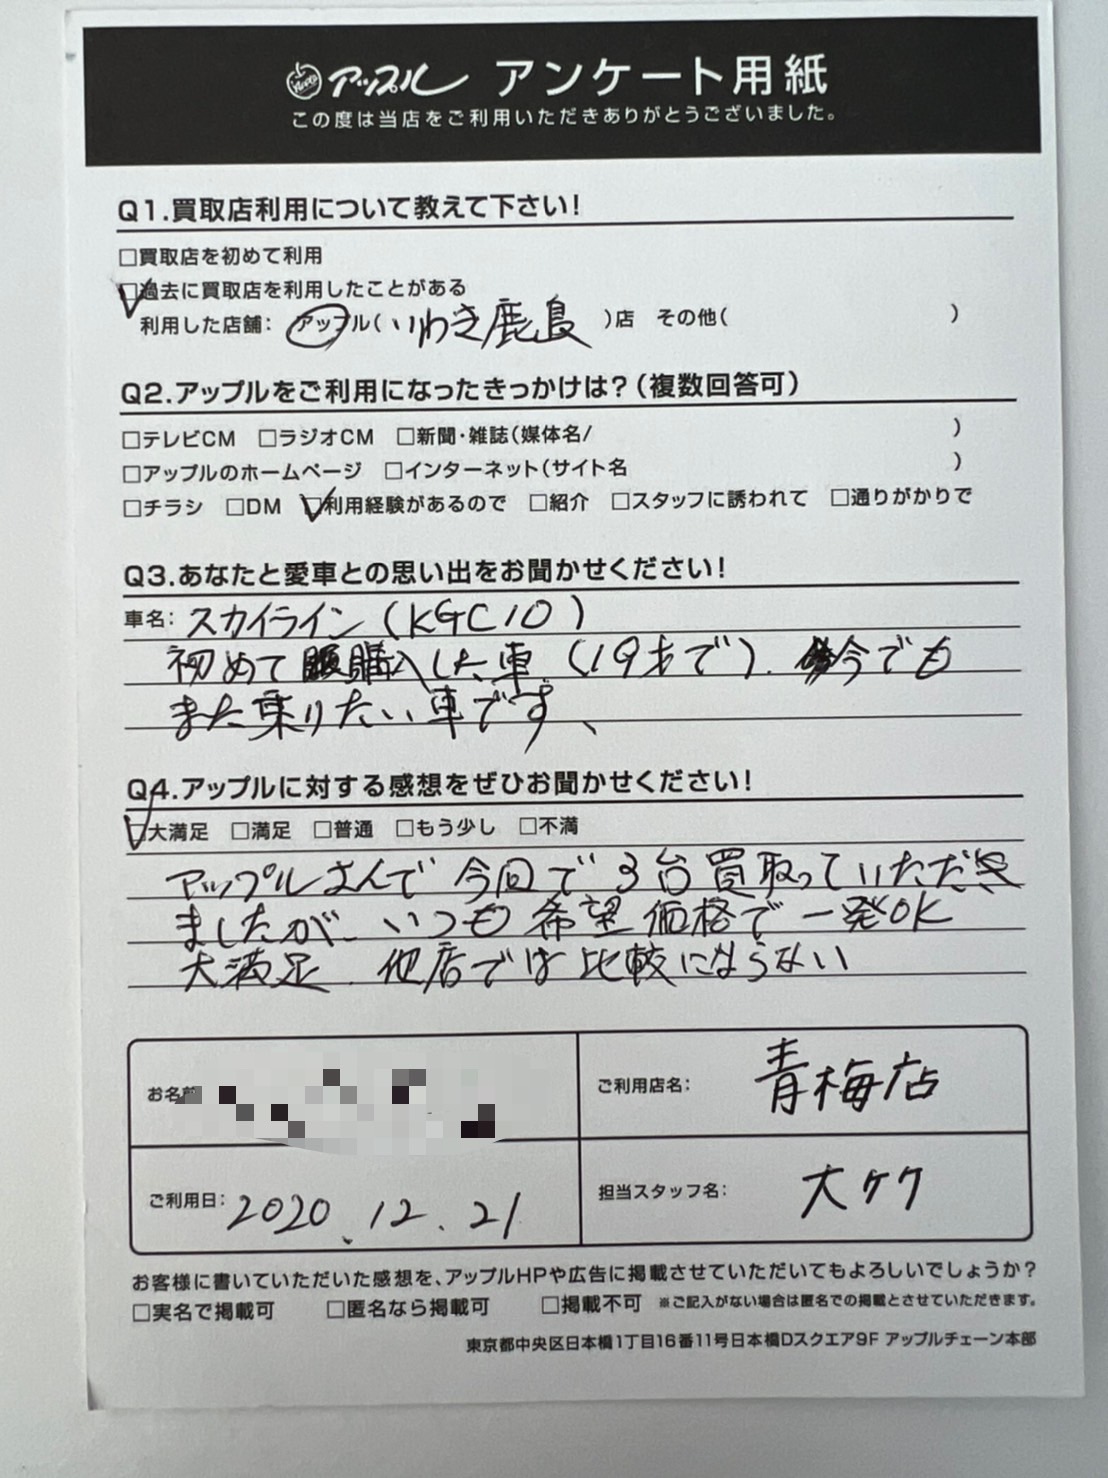 アップル アンケート用紙
この度は当店をご利用いただきありがとうございました。
Q1.買取店利用について教えて下さい!
□買取店を初めて利用
□過去に買取店を利用したことがある
利用した店舗: アップル(いわき鹿島)店 その他( )
Q2.アップルをご利用になったきっかけは?(複数回答可)
□テレビCM □ラジオCM □新聞・雑誌(媒体名/ )
□アップルのホームページ □インターネット(サイト名 )
□チラシ □DM □利用経験があるので □紹介 □スタッフに誘われて □通りがかりで
Q3.あなたと愛車との思い出をお聞かせください!
車名: スカイライン(KGC10)
初めて購入した車(19才で)、今でも
また乗りたい車です、
Q4.アップルに対する感想をぜひお聞かせください!
□大満足 □満足 □普通 □もう少し □不満
アップルさんで今回で3台買取っていただき
ましたが、いつも希望価格で一発OK
大満足、他店では比較にならない
お名前
ご利用店名: 青梅店
ご利用日: 2020.12.21
担当スタッフ名: 大ケク
お客様に書いていただいた感想を、アップルHPや広告に掲載させていただいてもよろしいでしょうか?
□実名で掲載可 □匿名なら掲載可 □掲載不可 ※ご記入がない場合は匿名での掲載とさせていただきます。
東京都中央区日本橋1丁目16番11号日本橋Dスクエア9F アップルチェーン本部